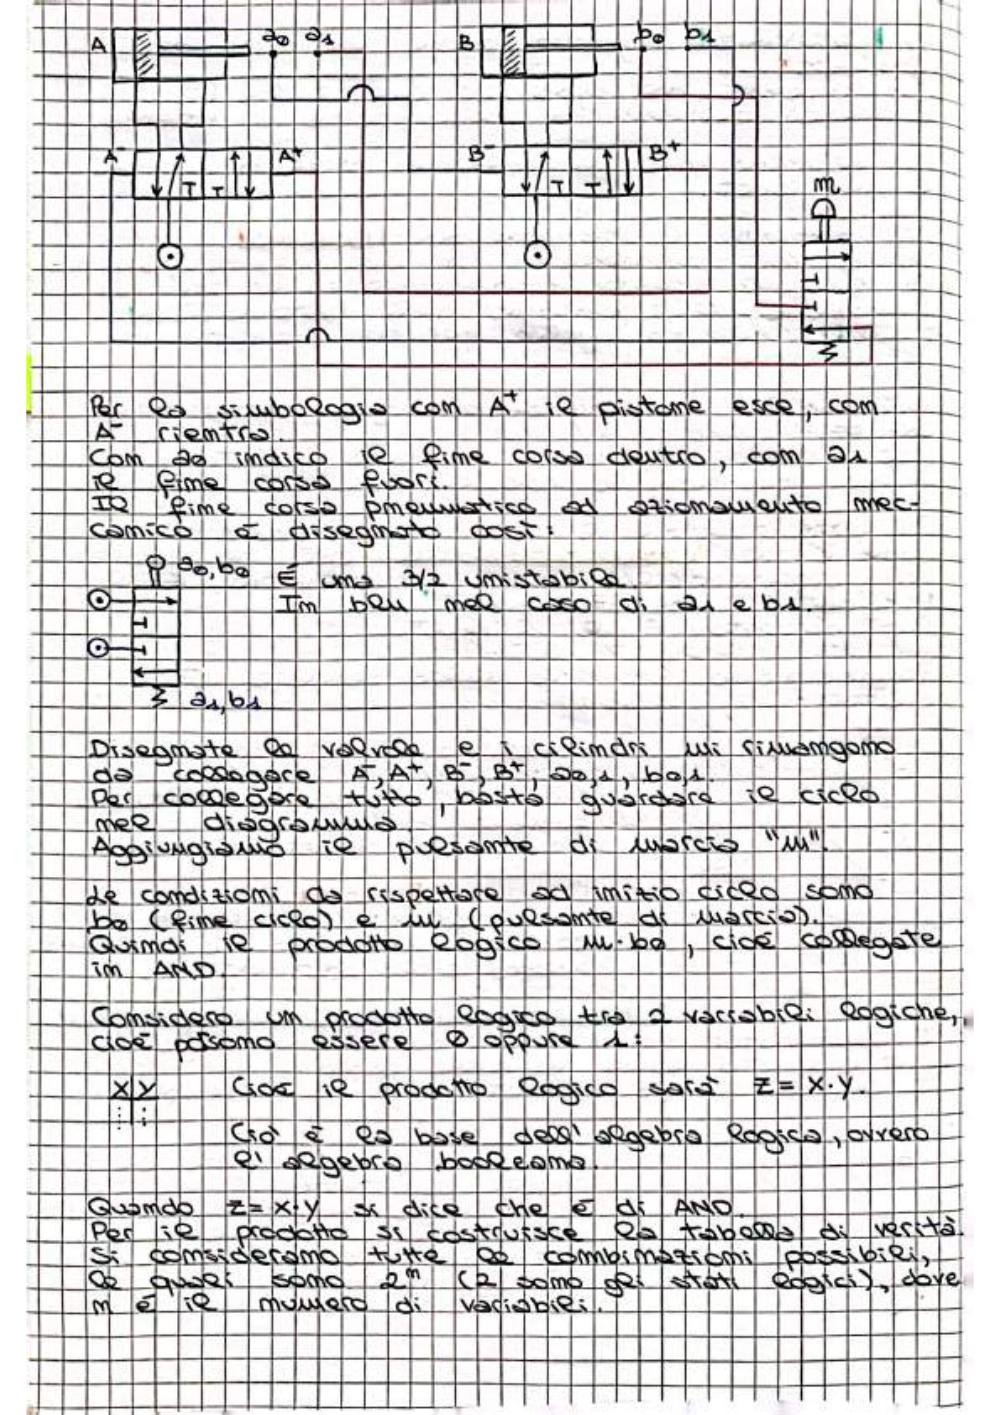 A a0 a1 B b0 b1
A⁻ A⁺ B⁻ B⁺
T T T T
m
Per la simbologia con A⁺ il pistone esce, con
A⁻ rientra.
Con a0 indico il fine corsa dentro, con a1
il fine corsa fuori.
Il fine corsa pneumatico ad azionamento mec-
canico è disegnato così:
a0,b0 È una 3/2 unistabile.
In blu nel caso di a1 e b1.
a1,b1
Disegnate le valvole e i cilindri mi rimangono
da collegare A⁻, A⁺, B⁻, B⁺, a0,1, b0,1.
Per collegare tutto, basta guardare il ciclo
nel diagramma.
Aggiungiamo il pulsante di marcia "m".
Le condizioni da rispettare ad inizio ciclo sono
b0 (fine ciclo) e m (pulsante di marcia).
Quindi il prodotto logico m·b0, cioè collegate
in AND.
Considero un prodotto logico tra 2 variabili logiche,
cioè possono essere 0 oppure 1:
X Y Cioè il prodotto logico sarà z = x·y.
Ciò è la base dell'algebra logica, ovvero
l'algebra booleana.
Quando z = x·y si dice che è di AND.
Per il prodotto si costruisce la tabella di verità.
Si considerano tutte le combinazioni possibili,
le quali sono 2ⁿ (2 sono gli stati logici), dove
n è il numero di variabili.